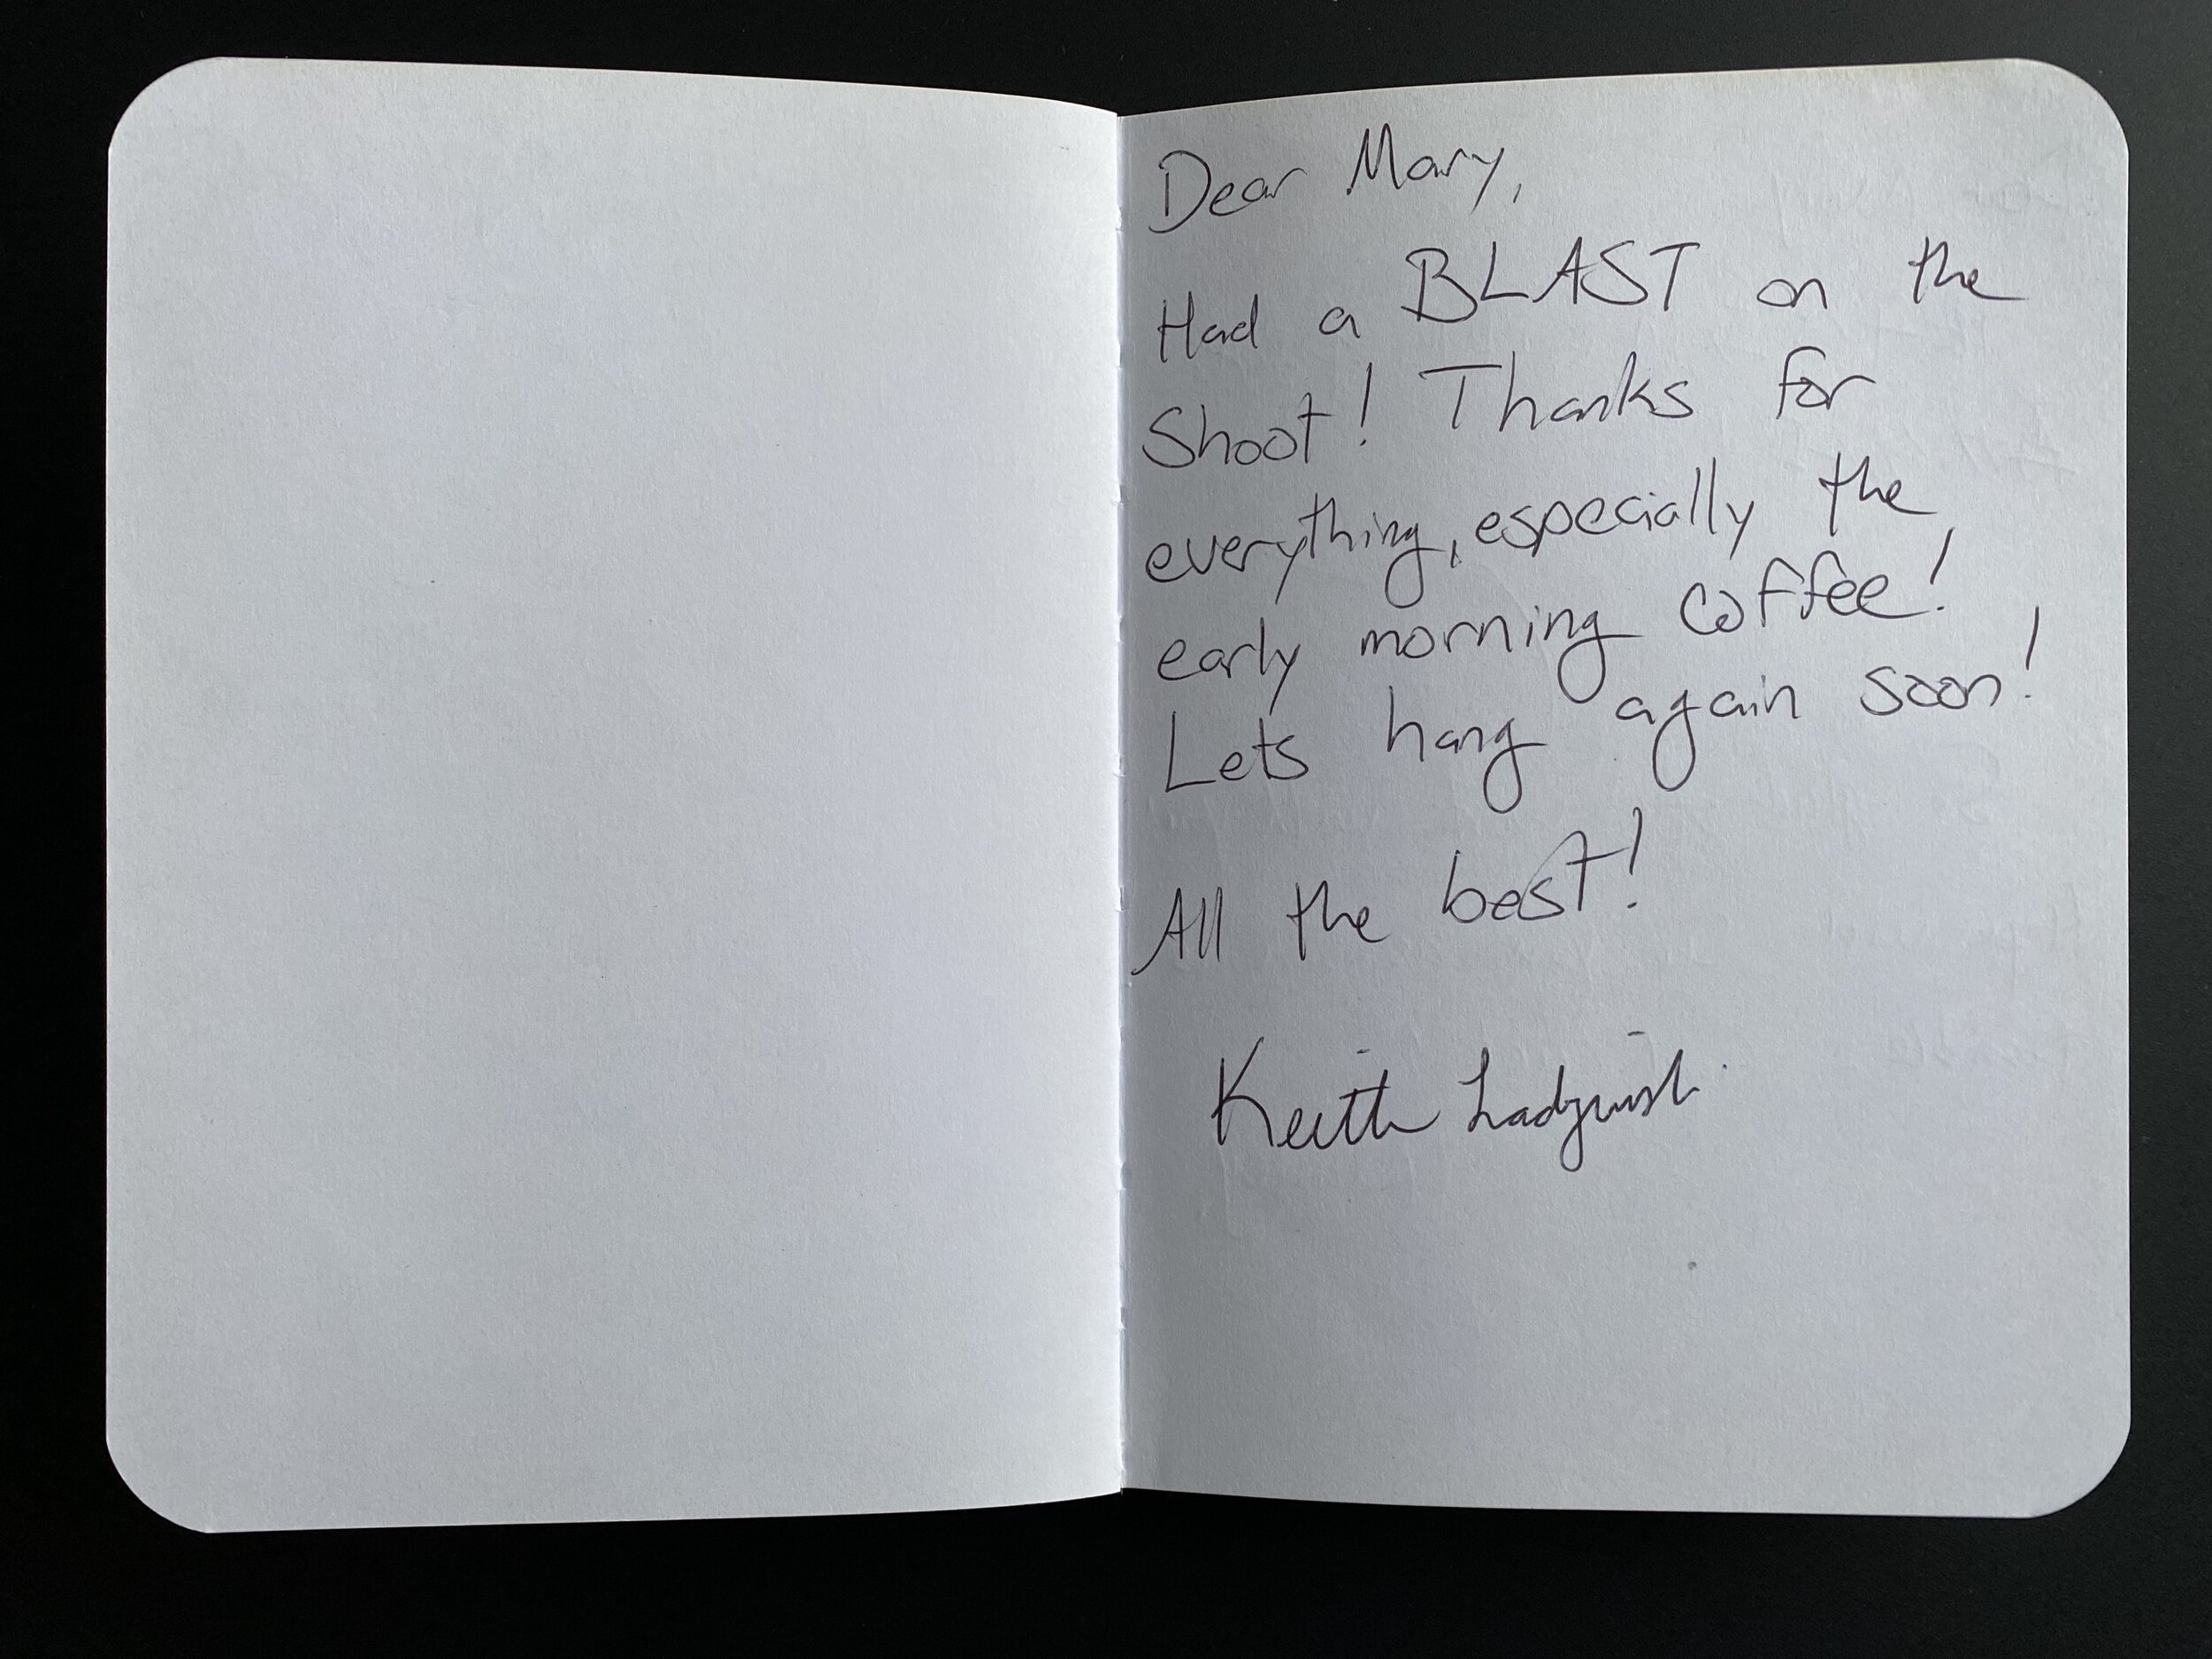 Dear Mary,
Had a BLAST on the
Shoot! Thanks for
everything, especially the
early morning coffee!
Lets hang again soon!
All the best!
Keith